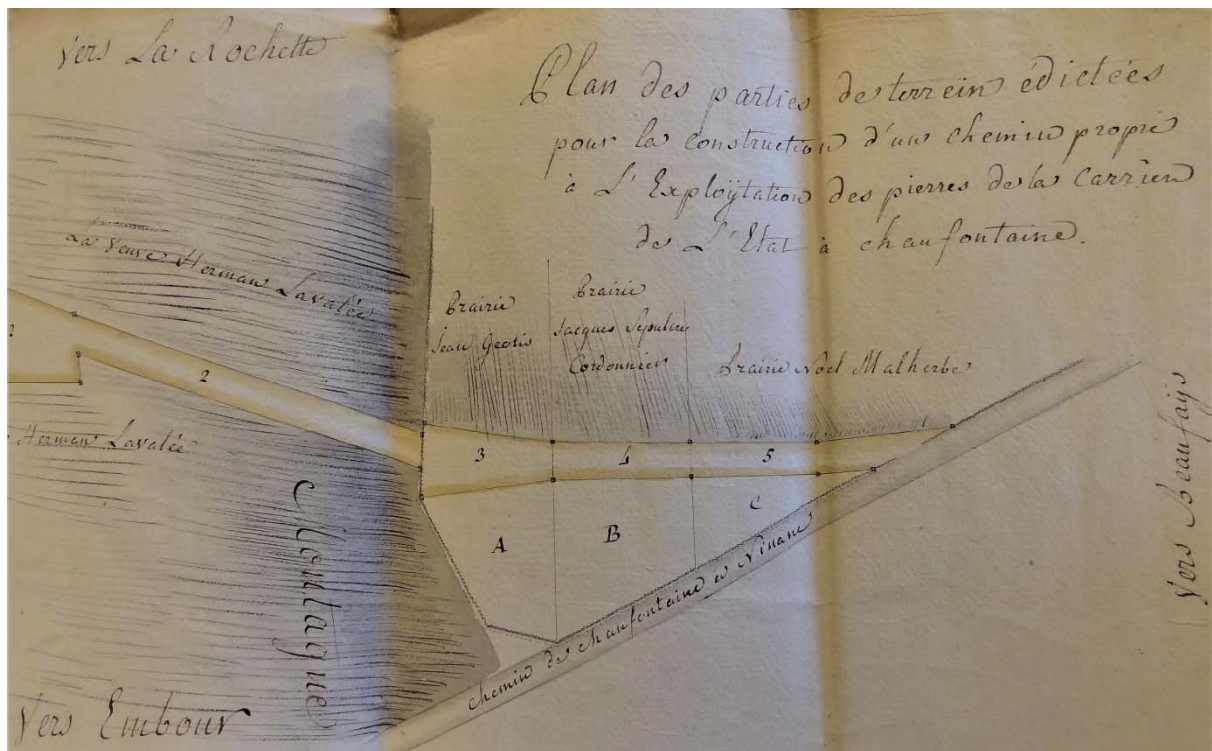 Vers La Rochette
Plan des parties de terrein édictées
pour la construction d'un chemin propre
à L'Exploÿtation des pierres de la Carrien
de L'Etat à chaufontaine.
La Veuve Herman Lavalée
Prairie
Jean Geotis
Prairie
Jacques
Cordonnier
Prairie Noel Malherbe
2
3
4
5
Herman Lavalée
A
B
C
Montagne
chemin de chaufontaine à Ninane
Vers Beaufays
Vers Embour